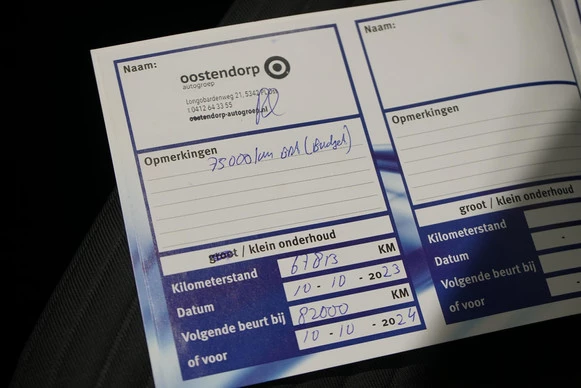 Naam:
oostendorp
autogroep
Longobardenweg 21, 5342
t.0412 64 33 55
oostendorp-autogroep.nl
Opmerkingen
75000/km (Budget)
groot / klein onderhoud
Kilometerstand 67813 KM
Datum 10 - 10 - 2023
Volgende beurt bij 82000 KM
of voor 10 - 10 - 2024
Naam:
Opmerkingen
groot / klein onderhoud
Kilometerstand
Datum
Volgende beurt bij
of voor